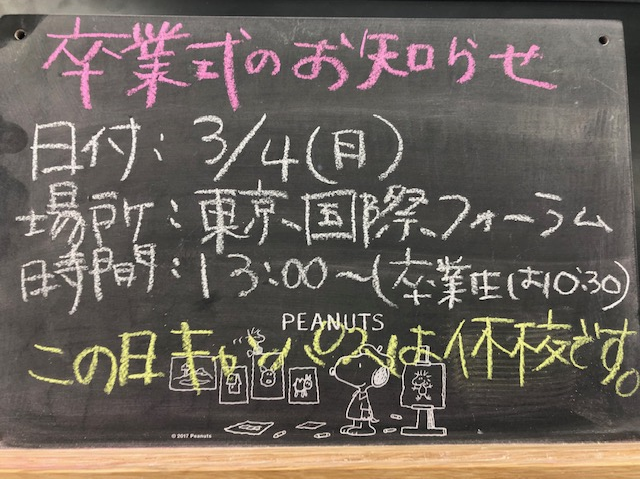 卒業式のお知らせ
日付：3/4(月)
場所：東京国際フォーラム
時間：13:00～(卒業生は10:30)
PEANUTS
この日キャンパスは休校です。
© 2017 Peanuts